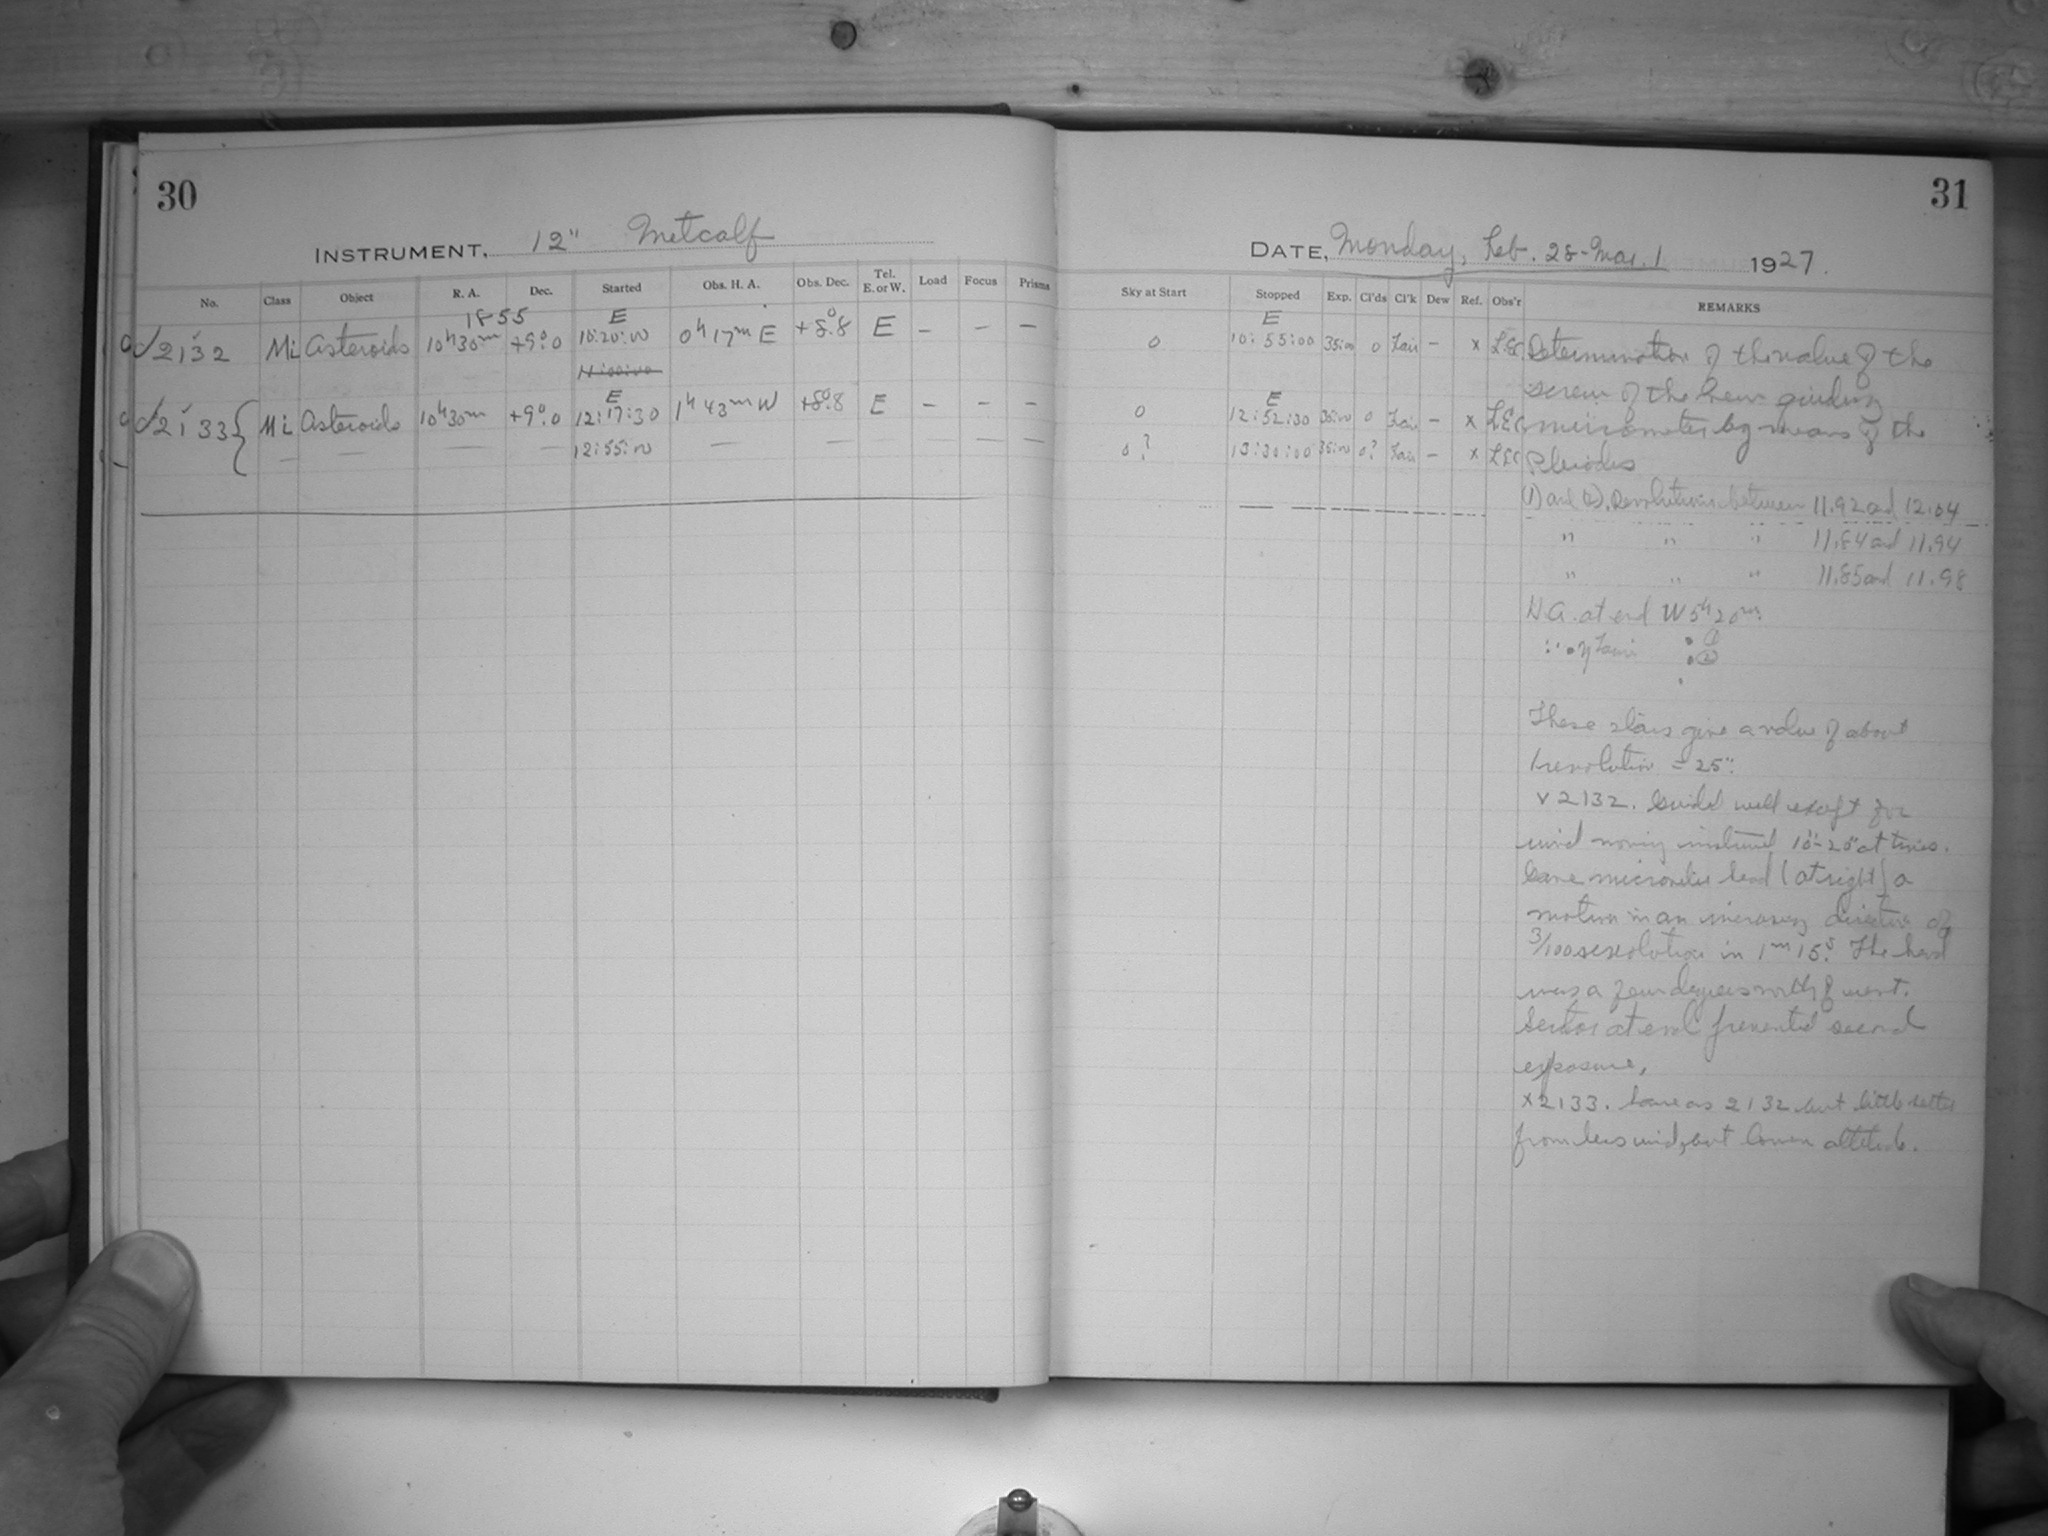 30
INSTRUMENT, 12" Metcalf
No. Class Object R. A. Dec. Started Obs. H. A. Obs. Dec. Tel. E. or W. Load Focus Prisms
1855 E
2132 Mi Asteroids 10h30m +9°.0 10:20:00 0h 17m E +8°.8 E - - -
11:00:00
E
2133 { Mi Asteroids 10h30m +9°.0 12:17:30 1h 43m W +8°.8 E - - -
— — — — 12:55:00 — — — —
31
DATE, Monday, Feb. 28-Mar. 1 1927.
Sky at Start Stopped Exp. Cl'ds Cl'k Dew Ref. Obs'r REMARKS
E
0 10:55:00 35:00 0 Fair - x L.E.C
E
0 12:52:30 35:00 0 Fair - x L.E.C
0? 13:30:00 35:00 0? Fair - x L.E.C
Determination of the value of the
screw of the new guiding
micrometer by means of the
Pleiades
(1) and (2). Revolutions between 11.92 and 12.04
" " " 11.84 and 11.94
" " " 11.85 and 11.98
H.A. at end W 5h 20m
(1)
(2)
These stars give a value of about
1 revolution = 25".
v 2132. Guided well except for
wind moving instrument 10"-20" at times.
Gave micrometer head (at right) a
motion in an increasing direction of
3/100 revolution in 1m 15s. The head
was a few degrees north of west.
at end prevented second
exposure,
x 2133. Same as 2132 but little better
from less wind, but lower altitude.